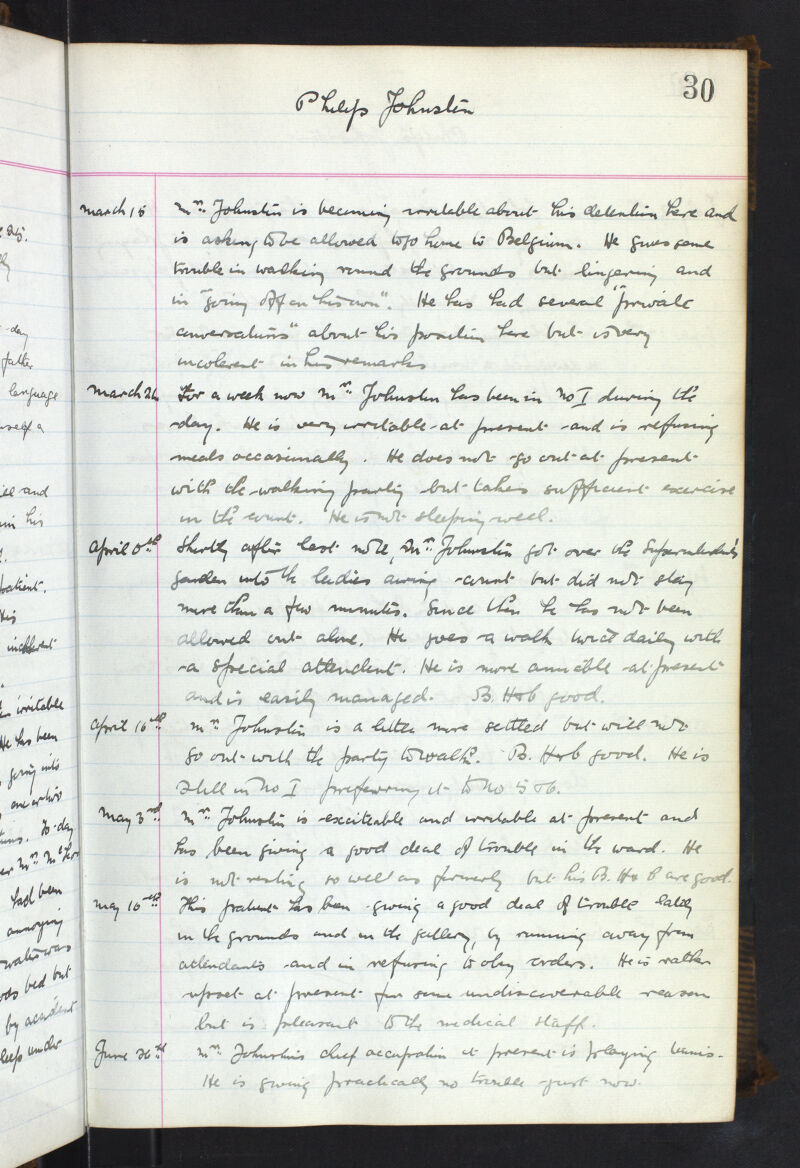 30
Philip Johnston
March 15 Mr. Johnston is becoming irritable about his detention here and
is asking to be allowed to go home to Belgium. He gives some
trouble in walking round the grounds but lingering and
in "going off on his own". He has had several "private
conversations" about his position here but is very
incoherent in his remarks
March 26 For a week now Mr. Johnston has been in No I during the
day. He is very irritable at present and is refusing
meals occasionally. He does not go out at present
with the walking party but takes sufficient exercise
in the court. He is not sleeping well.
April Shortly after last note, Mr. Johnston got over the Superintendent's
garden into the ladies airing court but did not stay
more than a few minutes. Since then he has not been
allowed out alone. He goes a walk twice daily with
a special attendent. He is more amiable at present
and is easily managed. B. H & b good.
April 16th Mr. Johnston is a little more settled but will not
go out with the party to walk. B. H & b good. He is
still in No I preferring it to No 5
May 3rd Mr. Johnston is exciteable and irritable at present and
has been giving a good deal of trouble in the ward. He
is not resting so well as formerly but his B. H & B are good.
May 10th This patient has been giving a good deal of trouble lately
in the grounds and in the gallery, by running away from
attendants and in refusing to obey orders. He is rather
upset at present for some undiscoverable reason
but is pleasant to the medical staff.
June 26th Mr. Johnston's chief occupation at present is playing tennis.
He is giving practically no trouble just now.
day
father
language
used a
and
in his
patient.
His
incoherent
irritable
He has been
going into
To-day
had been
annoying
water was
bed but
by accident
under